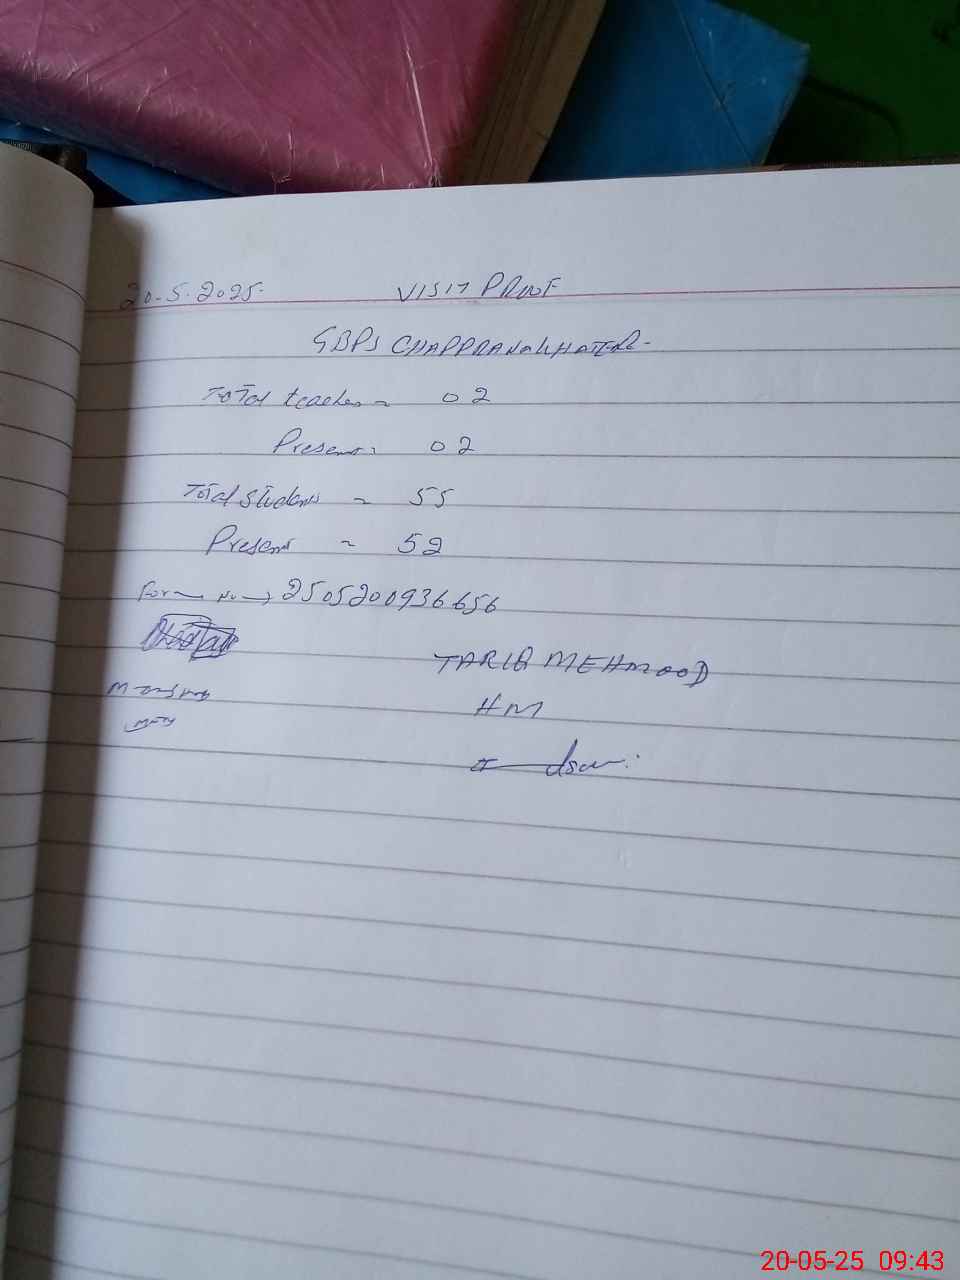 20-5-2025. VISIT PROOF
GBPS
Total teacher = 02
Present = 02
Total students = 55
Present = 52
Form No → 2505200936656
TARIQ MEHMOOD
HM
20-05-25 09:43